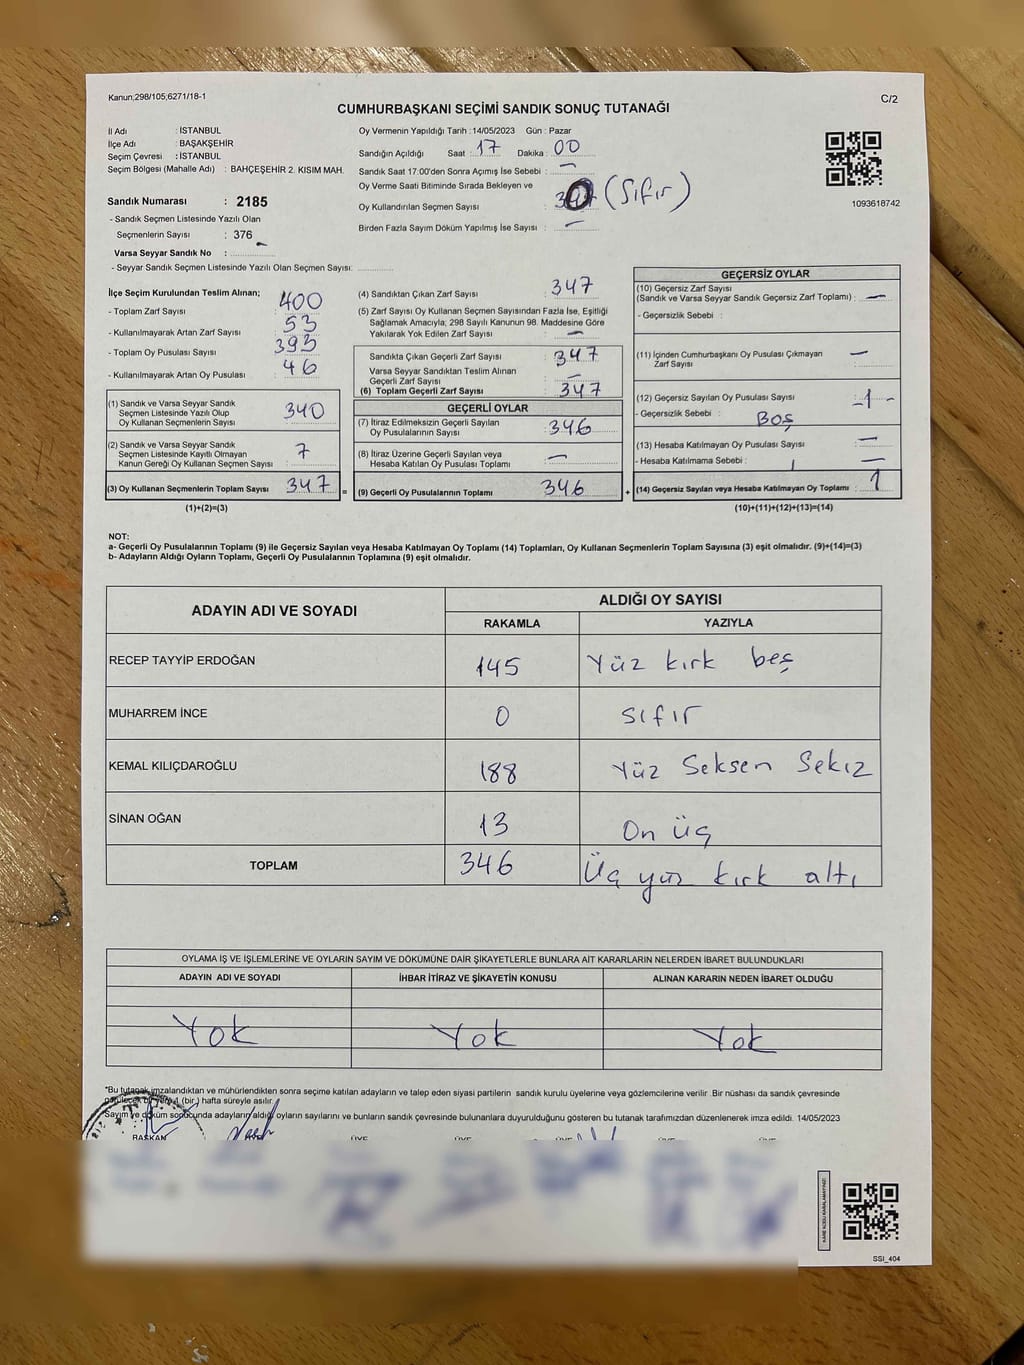 Kanun:298/105;6271/18-1
CUMHURBAŞKANI SEÇİMİ SANDIK SONUÇ TUTANAĞI
C/2
İl Adı : İSTANBUL
İlçe Adı : BAŞAKŞEHİR
Seçim Çevresi : İSTANBUL
Seçim Bölgesi (Mahalle Adı) : BAHÇEŞEHİR 2. KISIM MAH.
Sandık Numarası : 2185
- Sandık Seçmen Listesinde Yazılı Olan
Seçmenlerin Sayısı : 376
Varsa Seyyar Sandık No : –
- Seyyar Sandık Seçmen Listesinde Yazılı Olan Seçmen Sayısı:
Oy Vermenin Yapıldığı Tarih :14/05/2023 Gün : Pazar
Sandığın Açıldığı Saat : 17 Dakika : 00
Sandık Saat 17:00'den Sonra Açımış İse Sebebi : –
Oy Verme Saati Bitiminde Sırada Bekleyen ve
Oy Kullandırılan Seçmen Sayısı : 0 (Sıfır)
Birden Fazla Sayım Döküm Yapılmış İse Sayısı : –
1093618742
İlçe Seçim Kurulundan Teslim Alınan;
- Toplam Zarf Sayısı : 400
- Kullanılmayarak Artan Zarf Sayısı : 53
- Toplam Oy Pusulası Sayısı : 393
- Kullanılmayarak Artan Oy Pusulası : 46
(1) Sandık ve Varsa Seyyar Sandık
Seçmen Listesinde Yazılı Olup
Oy Kullanan Seçmenlerin Sayısı : 340
(2) Sandık ve Varsa Seyyar Sandık
Seçmen Listesinde Kayıtlı Olmayan
Kanun Gereği Oy Kullanan Seçmen Sayısı : 7
(3) Oy Kullanan Seçmenlerin Toplam Sayısı : 347 =
(1)+(2)=(3)
(4) Sandıktan Çıkan Zarf Sayısı : 347
(5) Zarf Sayısı Oy Kullanan Seçmen Sayısından Fazla İse, Eşitliği
Sağlamak Amacıyla; 298 Sayılı Kanunun 98. Maddesine Göre
Yakılarak Yok Edilen Zarf Sayısı : –
Sandıkta Çıkan Geçerli Zarf Sayısı : 347
Varsa Seyyar Sandıktan Teslim Alınan
Geçerli Zarf Sayısı : –
(6) Toplam Geçerli Zarf Sayısı : 347
GEÇERLİ OYLAR
(7) İtiraz Edilmeksizin Geçerli Sayılan
Oy Pusulalarının Sayısı : 346
(8) İtiraz Üzerine Geçerli Sayılan veya
Hesaba Katılan Oy Pusulası Toplamı : –
(9) Geçerli Oy Pusulalarının Toplamı : 346 +
GEÇERSİZ OYLAR
(10) Geçersiz Zarf Sayısı
(Sandık ve Varsa Seyyar Sandık Geçersiz Zarf Toplamı) : –
- Geçersizlik Sebebi :
(11) İçinden Cumhurbaşkanı Oy Pusulası Çıkmayan
Zarf Sayısı –
(12) Geçersiz Sayılan Oy Pusulası Sayısı : -1-
- Geçersizlik Sebebi : BOŞ
(13) Hesaba Katılmayan Oy Pusulası Sayısı : –
- Hesaba Katılmama Sebebi : –
(14) Geçersiz Sayılan veya Hesaba Katılmayan Oy Toplamı : 1
(10)+(11)+(12)+(13)=(14)
NOT:
a- Geçerli Oy Pusulalarının Toplamı (9) ile Geçersiz Sayılan veya Hesaba Katılmayan Oy Toplamı (14) Toplamları, Oy Kullanan Seçmenlerin Toplam Sayısına (3) eşit olmalıdır. (9)+(14)=(3)
b- Adayların Aldığı Oyların Toplamı, Geçerli Oy Pusulalarının Toplamına (9) eşit olmalıdır.
ADAYIN ADI VE SOYADI
ALDIĞI OY SAYISI
RAKAMLA YAZIYLA
RECEP TAYYİP ERDOĞAN 145 Yüz kırk beş
MUHARREM İNCE 0 sıfır
KEMAL KILIÇDAROĞLU 188 Yüz Seksen Sekiz
SİNAN OĞAN 13 On üç
TOPLAM 346 Üç yüz kırk altı
OYLAMA İŞ VE İŞLEMLERİNE VE OYLARIN SAYIM VE DÖKÜMÜNE DAİR ŞİKAYETLERLE BUNLARA AİT KARARLARIN NELERDEN İBARET BULUNDUKLARI
ADAYIN ADI VE SOYADI İHBAR İTİRAZ VE ŞİKAYETİN KONUSU ALINAN KARARIN NEDEN İBARET OLDUĞU
Yok Yok Yok
*Bu tutanak imzalandıktan ve mühürlendikten sonra seçime katılan adayların ve talep eden siyasi partilerin sandık kurulu üyelerine veya gözlemcilerine verilir. Bir nüshası da sandık çevresinde
görülecek bir yere 1 (bir ) hafta süreyle asılır.
Sayım ve döküm sonucunda adayların aldığı oyların sayılarını ve bunların sandık çevresinde bulunanlara duyurulduğunu gösteren bu tutanak tarafımızdan düzenlenerek imza edildi. 14/05/2023
BAŞKAN ÜYE ÜYE ÜYE ÜYE ÜYE
SSI_404